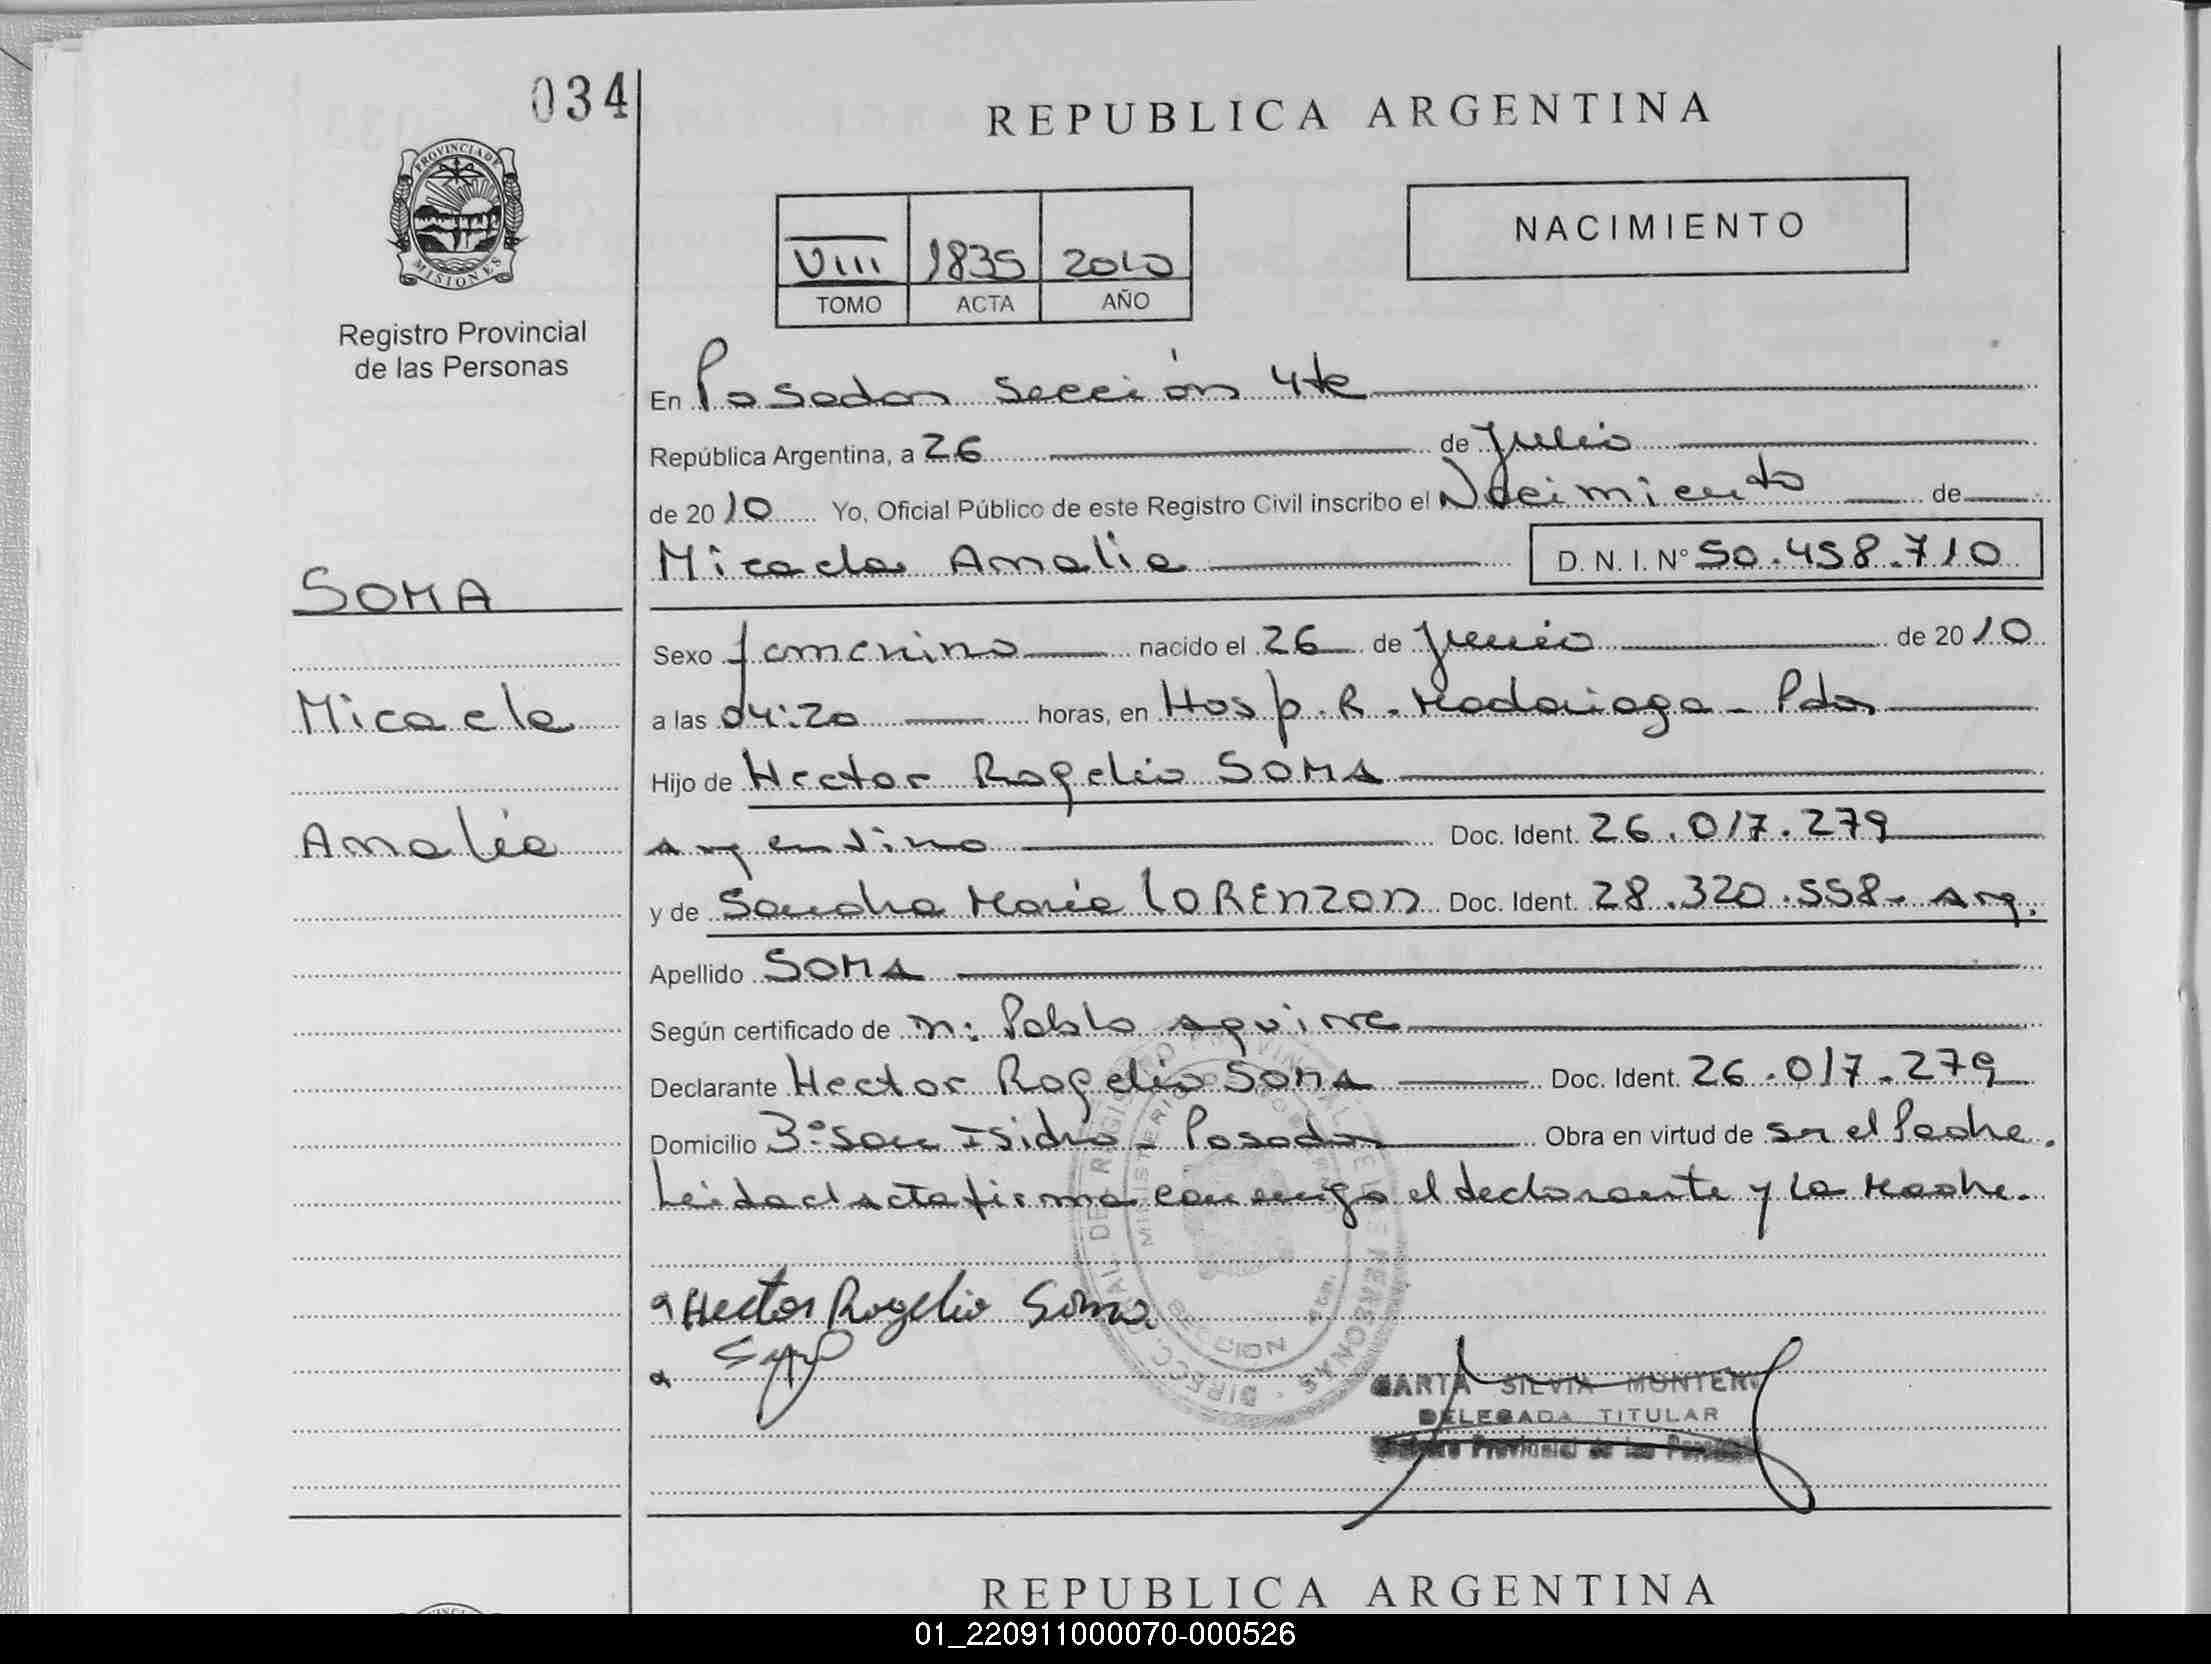 034
REPUBLICA ARGENTINA
PROVINCIA DE
MISIONES
Registro Provincial
de las Personas
NACIMIENTO
VIII 1835 2010
TOMO ACTA AÑO
En Posadas Sección 4ta
República Argentina, a 26 de Julio
de 2010 Yo, Oficial Público de este Registro Civil inscribo el Nacimiento de
Micaela Amalia D. N. I. N° 50.458.710
SOMA
Micaela
Amalia
Sexo femenino nacido el 26 de Junio de 2010
a las 04:20 horas, en Hosp. R. Madariaga - Pdas
Hijo de Hector Rogelio SOMA
argentino Doc. Ident. 26.017.279
y de Sandra María LORENZON Doc. Ident. 28.320.558- arg.
Apellido SOMA
Según certificado de M: Pablo Aguirre
Declarante Hector Rogelio SOMA Doc. Ident. 26.017.279
Domicilio Bº San Isidro - Posadas Obra en virtud de ser el Padre.
Leida el acta firma conmigo el declarante y la Madre.
Hector Rogelio Soma
SILVIA MONTERO
DELEGADA TITULAR
Registro Provincial de las Personas
REPUBLICA ARGENTINA
01_220911000070-000526